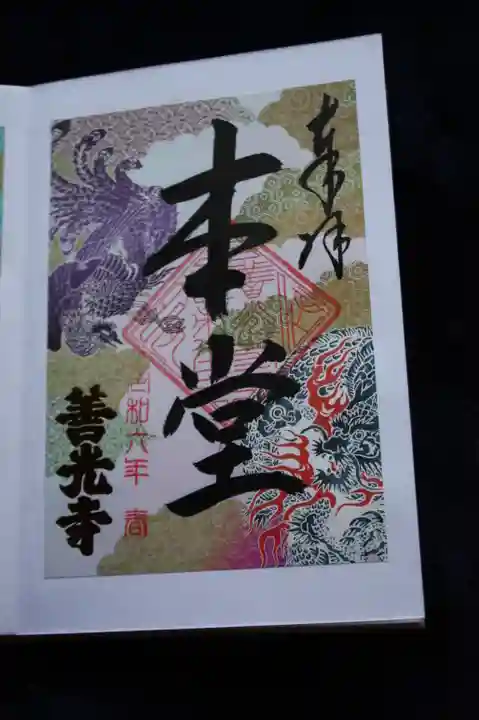 奉拝
本堂
令和六年 春
善光寺